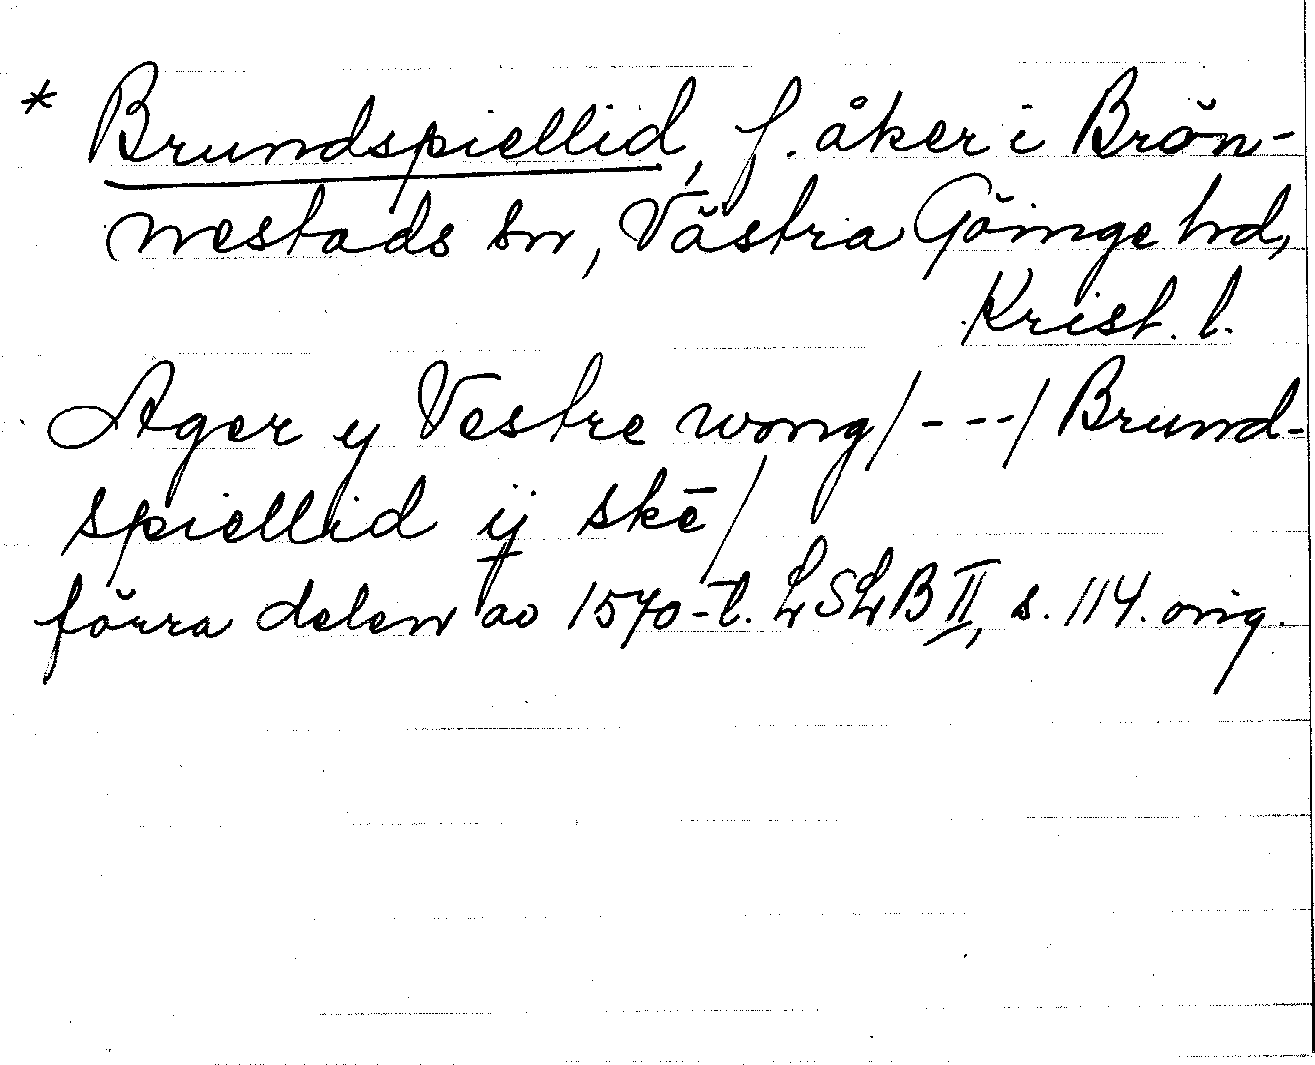 * Brundspiellid, f. åker i Brön-
nestads sn, Västra Göinge hd,
Krist. l.
Ager y Vestre wong/---/Brund-
spiellid ij skē/
förra delen av 1570-t. LSLB II, s. 114. orig.